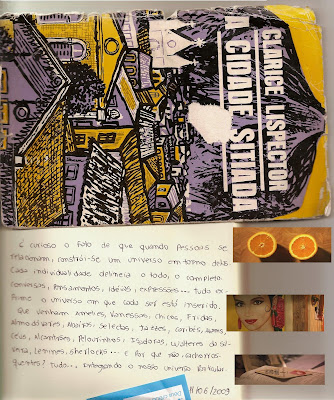 CLARICE LISPECTOR
A CIDADE SITIADA
é curioso o fato de que quando pessoas se
relacionam, constrói-se um universo em torno delas
Cada individualidade delineia o todo, o completa.
Conversos, Pensamentos, ideias, expressões... tudo ex-
Prime o universo em que cada ser está inserido.
que venham Amelies, Vanessas, Chicos, Fridas,
Almodóvares, Marios, Selectas, Jazzes, Caribés,
Céus, Pelourinhos, Isadoras, Wolteres da sil-
veira, Leticines, sherlocks... e Por que não cachorros
quentes? Tudo... integrando o nosso universo Particular.
11/06/2009